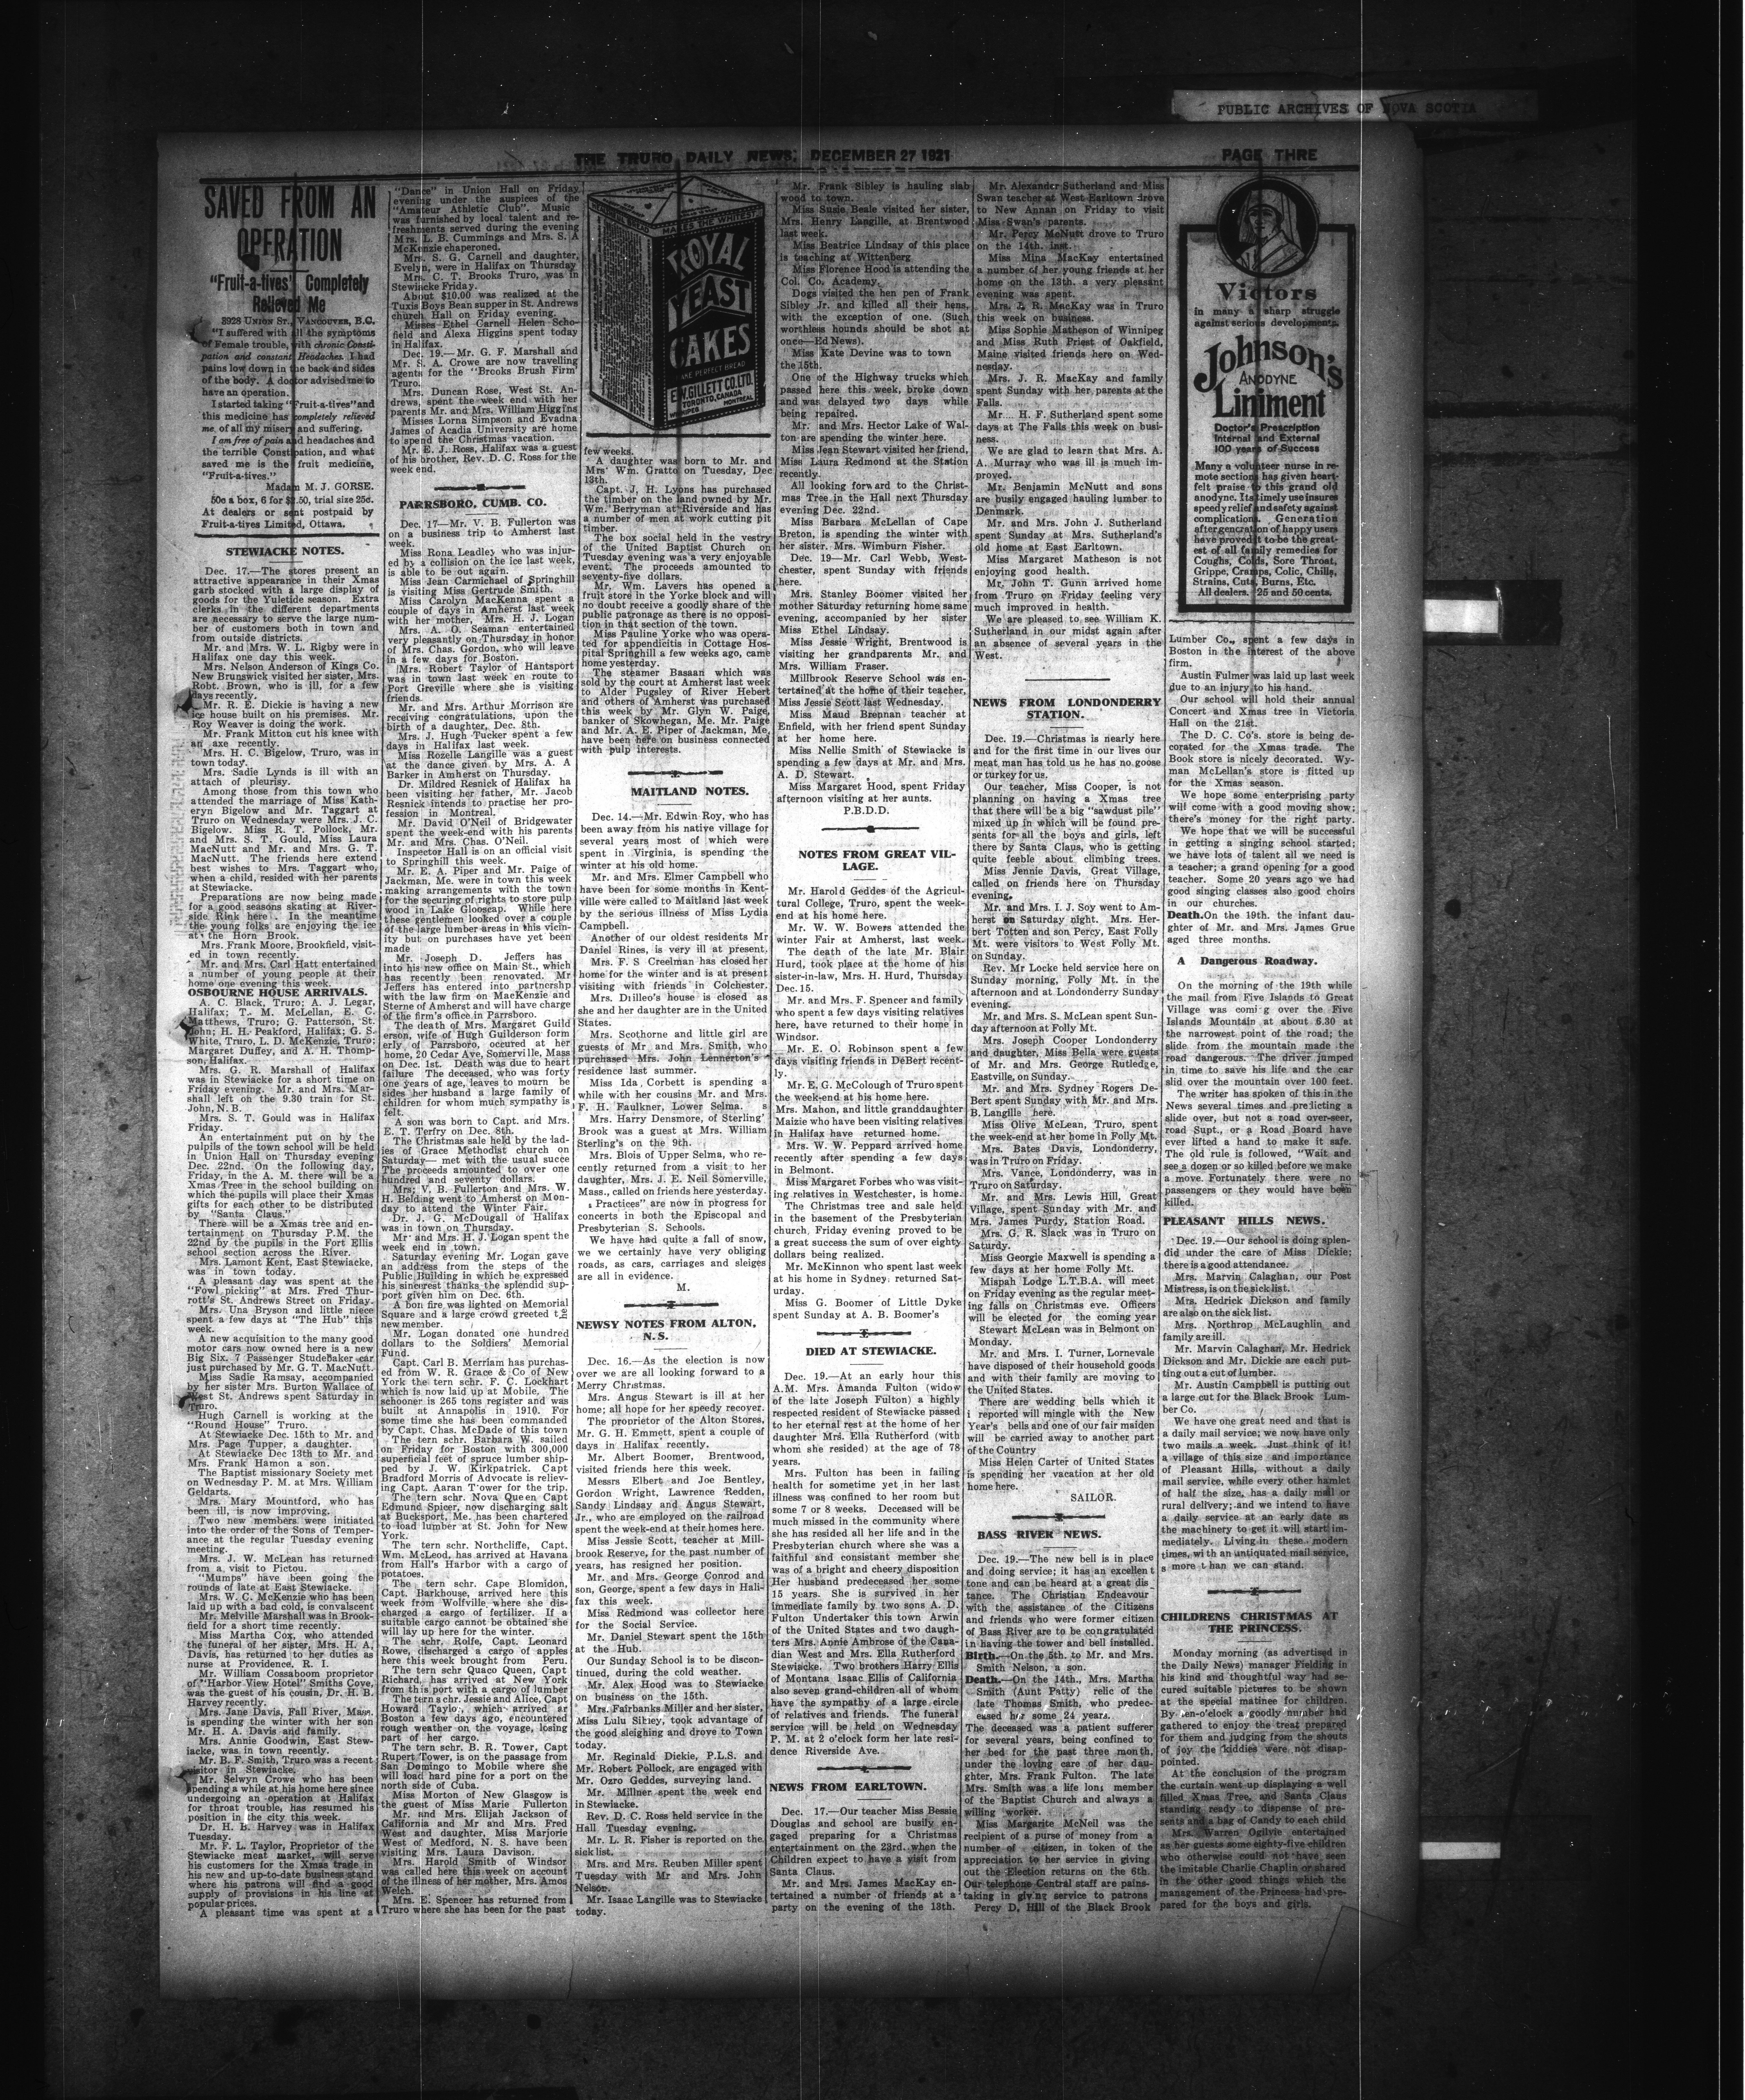 PUBLIC ARCHIVES OF NOVA SCOTIA
THE TRURO DAILY NEWS, DECEMBER 27 1921
PAGE THRE
SAVED FROM AN
OPERATION
"Fruit-a-tives" Completely
Relieved Me
3928 UNION ST., VANCOUVER, B.C.
"I suffered with all the symptoms
of Female trouble, with chronic Consti-
pation and constant Headaches. I had
pains low down in the back and sides
of the body. A doctor advised me to
have an operation.
I started taking "Fruit-a-tives" and
this medicine has completely relieved
me of all my misery and suffering.
I am free of pain and headaches and
the terrible Constipation, and what
saved me is the fruit medicine,
"Fruit-a-tives."
Madam M. J. GORSE.
50c a box, 6 for $2.50, trial size 25c.
At dealers or sent postpaid by
Fruit-a-tives Limited, Ottawa.
STEWIACKE NOTES.
Dec. 17.—The stores present an
attractive appearance in their Xmas
garb stocked with a large display of
goods for the Yuletide season. Extra
clerks in the different departments
are necessary to serve the large num-
ber of customers both in town and
from outside districts.
Mr. and Mrs. W. L. Rigby were in
Halifax one day this week.
Mrs. Nelson Anderson of Kings Co.
New Brunswick visited her sister, Mrs.
Robt. Brown, who is ill, for a few
days recently.
Mr. R. E. Dickie is having a new
ice house built on his premises. Mr.
Roy Weaver is doing the work.
Mr. Frank Mitton cut his knee with
an axe recently.
Mrs. H. C. Bigelow, Truro, was in
town today.
Mrs. Sadie Lynds is ill with an
attach of pleurisy.
Among those from this town who
attended the marriage of Miss Kath-
eryn Bigelow and Mr. Taggart at
Truro on Wednesday were Mrs. J. C.
Bigelow. Miss R. T. Pollock, Mr.
and Mrs. S. T. Gould, Miss Laura
MacNutt and Mr. and Mrs. G. T.
MacNutt. The friends here extend
best wishes to Mrs. Taggart who,
when a child, resided with her parents
at Stewiacke.
Preparations are now being made
for a good seasons skating at River-
side Rink here. In the meantime
the young folks are enjoying the ice
at the Horn Brook.
Mrs. Frank Moore, Brookfield, visit-
ed in town recently.
Mr. and Mrs. Carl Hatt entertained
a number of young people at their
home one evening this week.
OSBOURNE HOUSE ARRIVALS.
A. C. Black, Truro; A. J. Legar,
Halifax; T. M. McLellan, E. C.
Matthews, Truro; G. Patterson, St.
John; H. H. Peakford, Halifax; G. S.
White, Truro, L. D. McKenzie, Truro;
Margaret Duffey, and A. H. Thomp-
son, Halifax.
Mrs. G. R. Marshall of Halifax
was in Stewiacke for a short time on
Friday evening. Mr. and Mrs. Mar-
shall left on the 9.30 train for St.
John, N.B.
Mrs. S. T. Gould was in Halifax
Friday.
An entertainment put on by the
pulpils of the town school will be held
in Union Hall on Thursday evening
Dec. 22nd. On the following day,
Friday, in the A. M. there will be a
Xmas Tree in the school building on
which the pupils will place their Xmas
gifts for each other to be distributed
by "Santa Claus."
There will be a Xmas tree and en-
tertainment on Thursday P.M. the
22nd by the pupils in the Fort Ellis
school section across the River.
Mrs. Lamont Kent, East Stewiacke,
was in town today.
A pleasant day was spent at the
"Fowl picking" at Mrs. Fred Thur-
rott's St. Andrews Street on Friday.
Mrs. Una Bryson and little niece
spent a few days at "The Hub" this
week.
A new acquisition to the many good
motor cars now owned here is a new
Big Six. 7 Passenger Studebaker car
just purchased by Mr. G. T. MacNutt.
Miss Sadie Ramsay, accompanied
by her sister Mrs. Burton Wallace of
West St. Andrews spent Saturday in
Truro.
Hugh Carnell is working at the
"Round House" Truro.
At Stewiacke Dec. 15th to Mr. and
Mrs. Page Tupper, a daughter.
At Stewiacke Dec 13th to Mr. and
Mrs. Frank Hamon a son.
The Baptist missionary Society met
on Wednesday P. M. at Mrs. William
Geldarts.
Mrs. Mary Mountford, who has
been ill, is now improving.
Two new members were initiated
into the order of the Sons of Temper-
ance at the regular Tuesday evening
meeting.
Mrs. J. W. McLean has returned
from a visit to Pictou.
"Mumps" have been going the
rounds of late at East Stewiacke.
Mrs. W. C. McKenzie who has been
laid up with a bad cold, is convalscent
Mr. Melville Marshall was in Brook-
field for a short time recently.
Miss Martha Cox, who attended
the funeral of her sister, Mrs. H. A.
Davis, has returned to her duties as
nurse at Providence, R. I.
Mr. William Cossaboom proprietor
of "Harbor View Hotel" Smiths Cove,
was the guest of his cousin, Dr. H. B.
Harvey recently.
Mrs. Jane Davis, Fall River, Mass.
is spending the winter with her son
Mr. H. A. Davis and family.
Mrs. Annie Goodwin, East Stew-
iacke, was in town recently.
Mr. B. F. Smith, Truro was a recent
visitor in Stewiacke.
Mr. Selwyn Crowe who has been
spending a while at his home here since
undergoing an operation at Halifax
for throat trouble, has resumed his
position in the city this week.
Dr. H. B. Harvey was in Halifax
Tuesday.
Mr. F. L. Taylor, Proprietor of the
Stewiacke meat market, will serve
his customers for the Xmas trade in
his new and up-to-date business stand
where his patrons will find a good
supply of provisions in his line at
popular prices.
A pleasant time was spent at a
"Dance" in Union Hall on Friday
evening under the auspices of the
"Amateur Athletic Club". Music
was furnished by local talent and re-
freshments served during the evening
Mrs. L. B. Cummings and Mrs. S. A
McKenzie chaperoned.
Mrs. S. G. Carnell and daughter,
Evelyn, were in Halifax on Thursday
Mrs. C. T. Brooks Truro, was in
Stewiacke Friday.
About $10.00 was realized at the
Tuxis Boys Bean supper in St. Andrews
church Hall on Friday evening.
Misses Ethel Carnell Helen Scho-
field and Alexa Higgins spent today
in Halifax.
Dec. 19.—Mr. G. F. Marshall and
Mr. S. A. Crowe are now travelling
agents for the "Brooks Brush Firm'
Truro.
Mrs. Duncan Rose, West St. An-
drews, spent the week end with her
parents Mr. and Mrs. William Higgins
Misses Lorna Simpson and Evadna
James of Acadia University are home
to spend the Christmas vacation.
Mr. E. J. Ross, Halifax was a guest
of his brother, Rev. D. C. Ross for the
week end.
PARRSBORO, CUMB. CO.
Dec. 17—Mr. V. B. Fullerton was
on a business trip to Amherst last
week.
Miss Rona Leadley who was injur-
ed by a collision on the ice last week,
is able to be out again.
Miss Jean Carmichael of Springhill
is visiting Miss Gertrude Smith.
Miss Carolyn MacKenna spent a
couple of days in Amherst last week
with her mother, Mrs. H. J. Logan
Mrs. A. O. Seaman entertained
very pleasantly on Thursday in honor
of Mrs. Chas. Gordon, who will leave
in a few days for Boston.
Mrs. Robert Taylor of Hantsport
was in town last week en route to
Port Greville where she is visiting
friends.
Mr. and Mrs. Arthur Morrison are
receiving congratulations, upon the
birth of a daughter, Dec. 8th.
Mrs. J. Hugh Tucker spent a few
days in Halifax last week.
Miss Rozelle Langille was a guest
at the dance given by Mrs. A. A
Barker in Amherst on Thursday.
Dr. Mildred Resnick of Halifax ha
been visiting her father, Mr. Jacob
Resnick intends to practise her pro-
fession in Montreal.
Mr. David O'Neil of Bridgewater
spent the week-end with his parents
Mr. and Mrs. Chas. O'Neil.
Inspector Hall is on an official visit
to Springhill this week.
Mr. E. A. Piper and Mr. Paige of
Jackman, Me. were in town this week
making arrangements with the town
for the securing of rights to store pulp
wood in Lake Glooscap. While here
these gentlemen looked over a couple
of the large lumber areas in this vicin-
ity but on purchases have yet been
made
Mr. Joseph D. Jeffers has
into his new office on Main St., which
has recently been renovated. Mr
Jeffers has entered into partnershp
with the law firm on MacKenzie and
Sterne of Amherst and will have charge
of the firm's office in Parrsboro.
The death of Mrs. Margaret Guild
erson, wife of Hugh Guilderson form
erly of Parrsboro, occured at her
home, 20 Cedar Ave, Somerville, Mass
on Dec. 1st. Death was due to heart
failure The deceased, who was forty
one years of age, leaves to mourn be
sides her husband a large family of
children for whom much sympathy is
felt.
A son was born to Capt. and Mrs.
E. T. Terfry on Dec. 8th.
The Christmas sale held by the lad-
ies of Grace Methodist church on
Saturday— met with the usual succe
The proceeds amounted to over one
hundred and seventy dollars.
Mrs; V. B. Fullerton and Mrs. W.
H. Belding went to Amherst on Mon-
day to attend the Winter Fair.
Dr. J. G. McDougall of Halifax
was in town on Thursday.
Mr and Mrs. H. J. Logan spent the
week end in town.
Saturday evening Mr. Logan gave
an address from the steps of the
Public Building in which he expressed
his sincerest thanks the splendid sup-
port given him on Dec. 6th.
A bon fire was lighted on Memorial
Square and a large crowd greeted the
new member.
Mr. Logan donated one hundred
dollars to the Soldiers' Memorial
Fund.
Capt. Carl B. Merriam has purchas-
ed from W. R. Grace & Co of New
York the tern schr. F. C. Lockhart
which is now laid up at Mobile. The
schooner is 265 tons register and was
built at Annapolis in 1910. For
some time she has been commanded
by Capt. Chas. McDade of this town
The tern schr. Barbara W. sailed
on Friday for Boston with 300,000
superficial feet of spruce lumber ship-
ped by J. W. Kirkpatrick. Capt
Bradford Morris of Advocate is reliev-
ing Capt. Aaran Tower for the trip.
The tern schr. Nova Queen Capt
Edmund Spicer, now discharging salt
at Bucksport, Me. has been chartered
to load lumber at St. John for New
York.
The tern schr. Northcliffe, Capt.
Wm. McLeod, has arrived at Havana
from Hall's Harbor with a cargo of
potatoes.
The tern schr. Cape Blomidon,
Capt. Barkhouse, arrived here this
week from Wolfville, where she dis-
charged a cargo of fertilizer. If a
suitable cargo cannot be obtained she
will lay up here for the winter.
The schr. Rolfe, Capt. Leonard
Rowe, discharged a cargo of apples
here this week brought from Peru.
The tern schr Quaco Queen, Capt
Richard, has arrived at New York
from this port with a cargo of lumber
The tern schr. Jessie and Alice, Capt
Howard Taylor, which arrived at
Boston a few days ago, encountered
rough weather on the voyage, losing
part of her cargo.
The tern schr. B. R. Tower, Capt
Rupert Tower, is on the passage from
San Domingo to Mobile where she
will load hard pine for a port on the
north side of Cuba.
Miss Morton of New Glasgow is
the guest of Miss Marie Fullerton
Mr. and Mrs. Elijah Jackson of
California and Mr and Mrs. Fred
West and daughter, Miss Marjorie
West of Medford, N. S. have been
visiting Mrs. Laura Davison.
Mrs. Harold Smith of Windsor
was called here this week on account
of the illness of her mother, Mrs. Amos
Welch.
Mrs. E. Spencer has returned from
Truro where she has been for the past
MAKES THE WHITEST
ROYAL
YEAST
CAKES
MAKE PERFECT BREAD
E.W. GILLETT CO. LTD.
TORONTO, CANADA
WINNIPEG MONTREAL
few weeks.
A daughter was born to Mr. and
Mrs' Wm. Gratto on Tuesday, Dec
13th.
Capt. J, H. Lyons has purchased
the timber on the land owned by Mr.
Wm. Berryman at Riverside and has
a number of men at work cutting pit
timber.
The box social held in the vestry
of the United Baptist Church on
Tuesday evening was a very enjoyable
event. The proceeds amounted to
seventy-five dollars.
Mr. Wm. Lavers has opened a
fruit store in the Yorke block and will
no doubt receive a goodly share of the
public patronage as there is no opposi-
tion in that section of the town.
Miss Pauline Yorke who was opera-
ted for appendicitis in Cottage Hos-
pital Springhill a few weeks ago, came
home yesterday.
The steamer Basaan which was
sold by the court at Amherst last week
to Alder Pugsley of River Hebert
and others of Amherst was purchased
this week by Mr. Glyn W. Paige,
banker of Skowhegan, Me. Mr. Paige
and Mr. A. E. Piper of Jackman, Me,
have been here on business connected
with pulp interests.
MAITLAND NOTES.
Dec. 14.—Mr. Edwin Roy, who has
been away from his native village for
several years most of which were
spent in Virginia, is spending the
winter at his old home.
Mr. and Mrs. Elmer Campbell who
have been for some months in Kent-
ville were called to Maitland last week
by the serious illness of Miss Lydia
Campbell.
Another of our oldest residents Mr
Daniel Rines, is very ill at present.
Mrs. F. S Creelman has closed her
home for the winter and is at present
visiting with friends in Colchester.
Mrs. Diilleo's house is closed as
she and her daughter are in the United
States.
Mrs. Scothorne and little girl are
guests of Mr. and Mrs. Smith, who
purchased Mrs. John Lennerton's
residence last summer.
Miss Ida Corbett is spending a
while with her cousins Mr. and Mrs.
F. H. Faulkner, Lower Selma. s
Mrs. Harry Densmore, of Sterling'
Brook was a guest at Mrs. William
Sterling's on the 9th.
Mrs. Blois of Upper Selma, who re-
cently returned from a visit to her
daughter, Mrs. J. E. Neil Somerville,
Mass., called on friends here yesterday.
Practices" are now in progress for
concerts in both the Episcopal and
Presbyterian S. Schools.
We have had quite a fall of snow,
we we certainly have very obliging
roads, as cars, carriages and sleiges
are all in evidence.
M.
NEWSY NOTES FROM ALTON,
N. S.
Dec. 16.—As the election is now
over we are all looking forward to a
Merry Christmas.
Mrs. Angus Stewart is ill at her
home; all hope for her speedy recover.
The proprietor of the Alton Stores,
Mr. G. H. Emmett, spent a couple of
days in Halifax recently.
Mr. Albert Boomer, Brentwood,
visited friends here this week.
Messrs Elbert and Joe Bentley,
Gordon Wright, Lawrence Redden,
Sandy Lindsay and Angus Stewart,
Jr., who are employed on the railroad
spent the week-end at their homes here.
Miss Jessie Scott, teacher at Mill-
brook Reserve, for the past number of
years, has resigned her position.
Mr. and Mrs. George Conrod and
son, George, spent a few days in Hali-
fax this week.
Miss Redmond was collector here
for the Social Service.
Mr. Daniel Stewart spent the 15th
at the Hub.
Our Sunday School is to be discon-
tinued, during the cold weather.
Mr. Alex Hood was to Stewiacke
on business on the 15th.
Mrs. Fairbanks Miller and her sister,
Miss Lulu Sibley, took advantage of
the good sleighing and drove to Town
today.
Mr. Reginald Dickie, P.L.S. and
Mr. Robert Pollock, are engaged with
Mr. Ozro Geddes, surveying land.
Mr. Millner spent the week end
in Stewiacke.
Rev. D. C. Ross held service in the
Hall Tuesday evening.
Mr. L. R. Fisher is reported on the
sick list.
Mrs. and Mrs. Reuben Miller spent
Tuesday with Mr and Mrs. John
Nelson.
Mr. Isaac Langille was to Stewiacke
today.
Mr. Frank Sibley is hauling slab
wood to town.
Miss Susie Beale visited her sister,
Mrs. Henry Langille, at Brentwood
last week.
Miss Beatrice Lindsay of this place
is teaching at Wittenberg
Miss Florence Hood is attending the
Col. Co. Academy.
Dogs visited the hen pen of Frank
Sibley Jr. and killed all their hens,
with the exception of one. (Such
worthless hounds should be shot at
once—Ed News).
Miss Kate Devine was to town
the 15th.
One of the Highway trucks which
passed here this week, broke down
and was delayed two days while
being repaired.
Mr. and Mrs. Hector Lake of Wal-
ton are spending the winter here.
Miss Jean Stewart visited her friend,
Miss Laura Redmond at the Station
recently.
All looking forward to the Christ-
mas Tree in the Hall next Thursday
evening Dec. 22nd.
Miss Barbara McLellan of Cape
Breton, is spending the winter with
her sister. Mrs. Wimburn Fisher.
Dec. 19—Mr. Carl Webb, West-
chester, spent Sunday with friends
here.
Mrs. Stanley Boomer visited her
mother Saturday returning home same
evening, accompanied by her sister
Miss Ethel Lindsay.
Miss Jessie Wright, Brentwood is
visiting her grandparents Mr. and
Mrs. William Fraser.
Millbrook Reserve School was en-
tertained at the home of their teacher,
Miss Jessie Scott last Wednesday.
Miss Maud Brennan teacher at
Enfield, with her friend spent Sunday
at her home here.
Miss Nellie Smith of Stewiacke is
spending a few days at Mr. and Mrs.
A. D. Stewart.
Miss Margaret Hood, spent Friday
afternoon visiting at her aunts.
P.B.D.D.
NOTES FROM GREAT VIL-
LAGE.
Mr. Harold Geddes of the Agricul-
tural College, Truro, spent the week-
end at his home here.
Mr. W. W. Bowers attended the
winter Fair at Amherst, last week.
The death of the late Mr. Blair
Hurd, took place at the home of his
sister-in-law, Mrs. H. Hurd, Thursday
Dec. 15.
Mr. and Mrs. F. Spencer and family
who spent a few days visiting relatives
here, have returned to their home in
Windsor.
Mr. E. O. Robinson spent a few
days visiting friends in DeBert recent-
ly.
Mr. E. G. McColough of Truro spent
the week-end at his home here.
Mrs. Mahon, and little granddaughter
Maizie who have been visiting relatives
in Halifax have returned home.
Mrs. W. W. Peppard arrived home
recently after spending a few days
in Belmont.
Miss Margaret Forbes who was visit-
ing relatives in Westchester, is home.
The Christmas tree and sale held
in the basement of the Presbyterian
church, Friday evening proved to be
a great success the sum of over eighty
dollars being realized.
Mr. McKinnon who spent last week
at his home in Sydney, returned Sat-
urday.
Miss G. Boomer of Little Dyke
spent Sunday at A. B. Boomer's
DIED AT STEWIACKE.
Dec. 19.—At an early hour this
A.M. Mrs. Amanda Fulton (widow
of the late Joseph Fulton) a highly
respected resident of Stewiacke passed
to her eternal rest at the home of her
daughter Mrs. Ella Rutherford (with
whom she resided) at the age of 78
years.
Mrs. Fulton has been in failing
health for sometime yet in her last
illness was confined to her room but
some 7 or 8 weeks. Deceased will be
much missed in the community where
she has resided all her life and in the
Presbyterian church where she was a
faithful and consistant member she
was of a bright and cheery disposition
Her husband predeceased her some
15 years. She is survived in her
immediate family by two sons A. D.
Fulton Undertaker this town Arwin
of the United States and two daugh-
ters Mrs. Annie Ambrose of the Cana-
dian West and Mrs. Ella Rutherford
Stewiacke. Two brothers Harry Ellis
of Montana Isaac Ellis of California
also seven grand-children all of whom
have the sympathy of a large circle
of relatives and friends. The funeral
service will be held on Wednesday
P. M. at 2 o'clock form her late resi-
dence Riverside Ave.
NEWS FROM EARLTOWN.
Dec. 17.—Our teacher Miss Bessie
Douglas and school are busily en-
gaged preparing for a Christmas
entertainment on the 23rd. when the
Children expect to have a visit from
Santa Claus.
Mr. and Mrs. James MacKay en-
tertained a number of friends at a
party on the evening of the 13th.
Mr. Alexander Sutherland and Miss
Swan teacher at West Earltown drove
to New Annan on Friday to visit
Miss Swan's parents.
Mr. Percy McNutt drove to Truro
on the 14th. inst.
Miss Mina MacKay entertained
a number of her young friends at her
home on the 13th. a very pleasant
evening was spent.
Mrs. J. R. MacKay was in Truro
this week on business.
Miss Sophie Matheson of Winnipeg
and Miss Ruth Priest of Oakfield,
Maine visited friends here on Wed-
nesday.
Mrs. J. R. MacKay and family
spent Sunday with her parents at the
Falls.
Mr. H. F. Sutherland spent some
days at The Falls this week on busi-
ness.
We are glad to learn that Mrs. A.
A. Murray who was ill is much im-
proved.
Mr. Benjamin McNutt and sons
are busily engaged hauling lumber to
Denmark.
Mr. and Mrs. John J. Sutherland
spent Sunday at Mrs. Sutherland's
old home at East Earltown.
Miss Margaret Matheson is not
enjoying good health.
Mr. John T. Gunn arrived home
from Truro on Friday feeling very
much improved in health.
We are pleased to see William K.
Sutherland in our midst again after
an absence of several years in the
West.
NEWS FROM LONDONDERRY
STATION.
Dec. 19.—Christmas is nearly here
and for the first time in our lives our
meat man has told us he has no goose
or turkey for us.
Our teacher, Miss Cooper, is not
planning on having a Xmas tree
that there will be a big "sawdust pile"
mixed up in which will be found pre-
sents for all the boys and girls, left
there by Santa Claus, who is getting
quite feeble about climbing trees.
Miss Jennie Davis, Great Village,
called on friends here on Thursday
evening.
Mr. and Mrs. I. J. Soy went to Am-
herst on Saturday night. Mrs. Her-
bert Totten and son Percy, East Folly
Mt. were visitors to West Folly Mt.
on Sunday.
Rev. Mr Locke held service here on
Sunday morning, Folly Mt. in the
afternoon and at Londonderry Sunday
evening.
Mr. and Mrs. S. McLean spent Sun-
day afternoon at Folly Mt.
Mrs. Joseph Cooper Londonderry
and daughter, Miss Bella were guests
of Mr. and Mrs. George Rutledge,
Eastville, on Sunday.
Mr. and Mrs. Sydney Rogers De-
Bert spent Sunday with Mr. and Mrs.
B. Langille here.
Miss Olive McLean, Truro, spent
the week-end at her home in Folly Mt.
Mrs. Bates Davis, Londonderry,
was in Truro on Friday.
Mrs. Vance, Londonderry, was in
Truro on Saturday.
Mr. and Mrs. Lewis Hill, Great
Village, spent Sunday with Mr. and
Mrs. James Purdy, Station Road.
Mrs. G. R. Slack was in Truro on
Saturdy.
Miss Georgie Maxwell is spending a
few days at her home Folly Mt.
Mispah Lodge L.T.B.A. will meet
on Friday evening as the regular meet-
ing falls on Christmas eve. Officers
will be elected for the coming year
Stewart McLean was in Belmont on
Monday.
Mr. and Mrs. I. Turner, Lornevale
have disposed of their household goods
and with their family are moving to
the United States.
There are wedding bells which it
i reported will mingle with the New
Year's bells and one of our fair maiden
will be carried away to another part
of the Country
Miss Helen Carter of United States
is spending her vacation at her old
home here.
SAILOR.
BASS RIVER NEWS.
Dec. 19.—The new bell is in place
and doing service; it has an excellent
tone and can be heard at a great dis-
tance. The Christian Endeavour
with the assistance of the Citizens
and friends who were former citizen
of Bass River are to be congratulated
in having the tower and bell installed.
Birth.—On the 5th. to Mr. and Mrs.
Smith Nelson, a son.
Death.—On the 14th., Mrs. Martha
Smith (Aunt Patty) relic of the
late Thomas Smith, who predec-
eased her some 24 years.
The deceased was a patient sufferer
for several years, being confined to
her bed for the past three month,
under the loving care of her dau-
ghter, Mrs. Frank Fulton. The late
Mrs. Smith was a life long member
of the Baptist Church and always a
willing worker.
Miss Margarite McNeil was the
recipient of a purse of money from a
number of citizen, in token of the
appreciation to her service in giving
out the Election returns on the 6th.
Our telephone Central staff are pains-
taking in giving service to patrons
Percy D. Hill of the Black Brook
Victors
in many a sharp struggle
against serious developments.
Johnson's
ANODYNE
Liniment
Doctor's Prescription
Internal and External
100 years of Success
Many a volunteer nurse in re-
mote sections has given heart-
felt praise to this grand old
anodyne. Its timely use insures
speedy relief and safety against
complications. Generation
after gencration of happy users
have proved it to be the great-
est of all family remedies for
Coughs, Colds, Sore Throat,
Grippe, Cramps, Colic, Chills,
Strains, Cuts, Burns, Etc.
All dealers. 25 and 50 cents.
Lumber Co., spent a few days in
Boston in the interest of the above
firm.
Austin Fulmer was laid up last week
due to an injury to his hand.
Our school will hold their annual
Concert and Xmas tree in Victoria
Hall on the 21st.
The D. C. Co's. store is being de-
corated for the Xmas trade. The
Book store is nicely decorated. Wy-
man McLellan's store is fitted up
for the Xmas season.
We hope some enterprising party
will come with a good moving show;
there's money for the right party.
We hope that we will be successful
in getting a singing school started;
we have lots of talent all we need is
a teacher; a grand opening for a good
teacher. Some 20 years ago we had
good singing classes also good choirs
in our churches.
Death.On the 19th. the infant dau-
ghter of Mr. and Mrs. James Grue
aged three months.
A Dangerous Roadway.
On the morning of the 19th while
the mail from Five Islands to Great
Village was coming over the Five
Islands Mountain at about 6.30 at
the narrowest point of the road; the
slide from the mountain made the
road dangerous. The driver jumped
in time to save his life and the car
slid over the mountain over 100 feet.
The writer has spoken of this in the
News several times and predicting a
slide over, but not a road over-seer,
road Supt., or a Road Board have
ever lifted a hand to make it safe.
The old rule is followed, "Wait and
see a dozen or so killed before we make
a move. Fortunately there were no
passengers or they would have been
killed.
PLEASANT HILLS NEWS.
Dec. 19.—Our school is doing splen-
did under the care of Miss Dickie;
there is a good attendance.
Mrs. Marvin Calaghan, our Post
Mistress, is on the sick list.
Mrs. Hedrick Dickson and family
are also on the sick list.
Mrs. Northrop McLaughlin and
family are ill.
Mr. Marvin Calaghan, Mr. Hedrick
Dickson and Mr. Dickie are each put-
ting out a cut of lumber.
Mr. Austin Campbell is putting out
a large cut for the Black Brook Lum-
ber Co.
We have one great need and that is
a daily mail service; we now have only
two mails a week. Just think of it!
a village of this size and importance
of Pleasant Hills, without a daily
mail service, while every other hamlet
of half the size, has a daily mail or
rural delivery; and we intend to have
a daily service at an early date as
the machinery to get it will start im-
mediately. Living in these modern
times, with an antiquated mail service,
s more than we can stand.
CHILDRENS CHRISTMAS AT
THE PRINCESS.
Monday morning (as advertised in
the Daily News) manager Fielding in
his kind and thoughtful way had se-
cured suitable pictures to be shown
at the special matinee for children.
By ten-o'clock a goodly number had
gathered to enjoy the treat prepared
for them and judging from the shouts
of joy the kiddies were not disap-
pointed.
At the conclusion of the program
the curtain went up displaying a well
filled Xmas Tree, and Santa Claus
standing ready to dispense of pre-
sents and a bag of Candy to each child
Mrs. Warren Ogilvie entertained
as her guests some eighty-five children
who otherwise could not have seen
the imitable Charlie Chaplin or shared
in the other good things which the
management of the Princess had pre-
pared for the boys and girls.